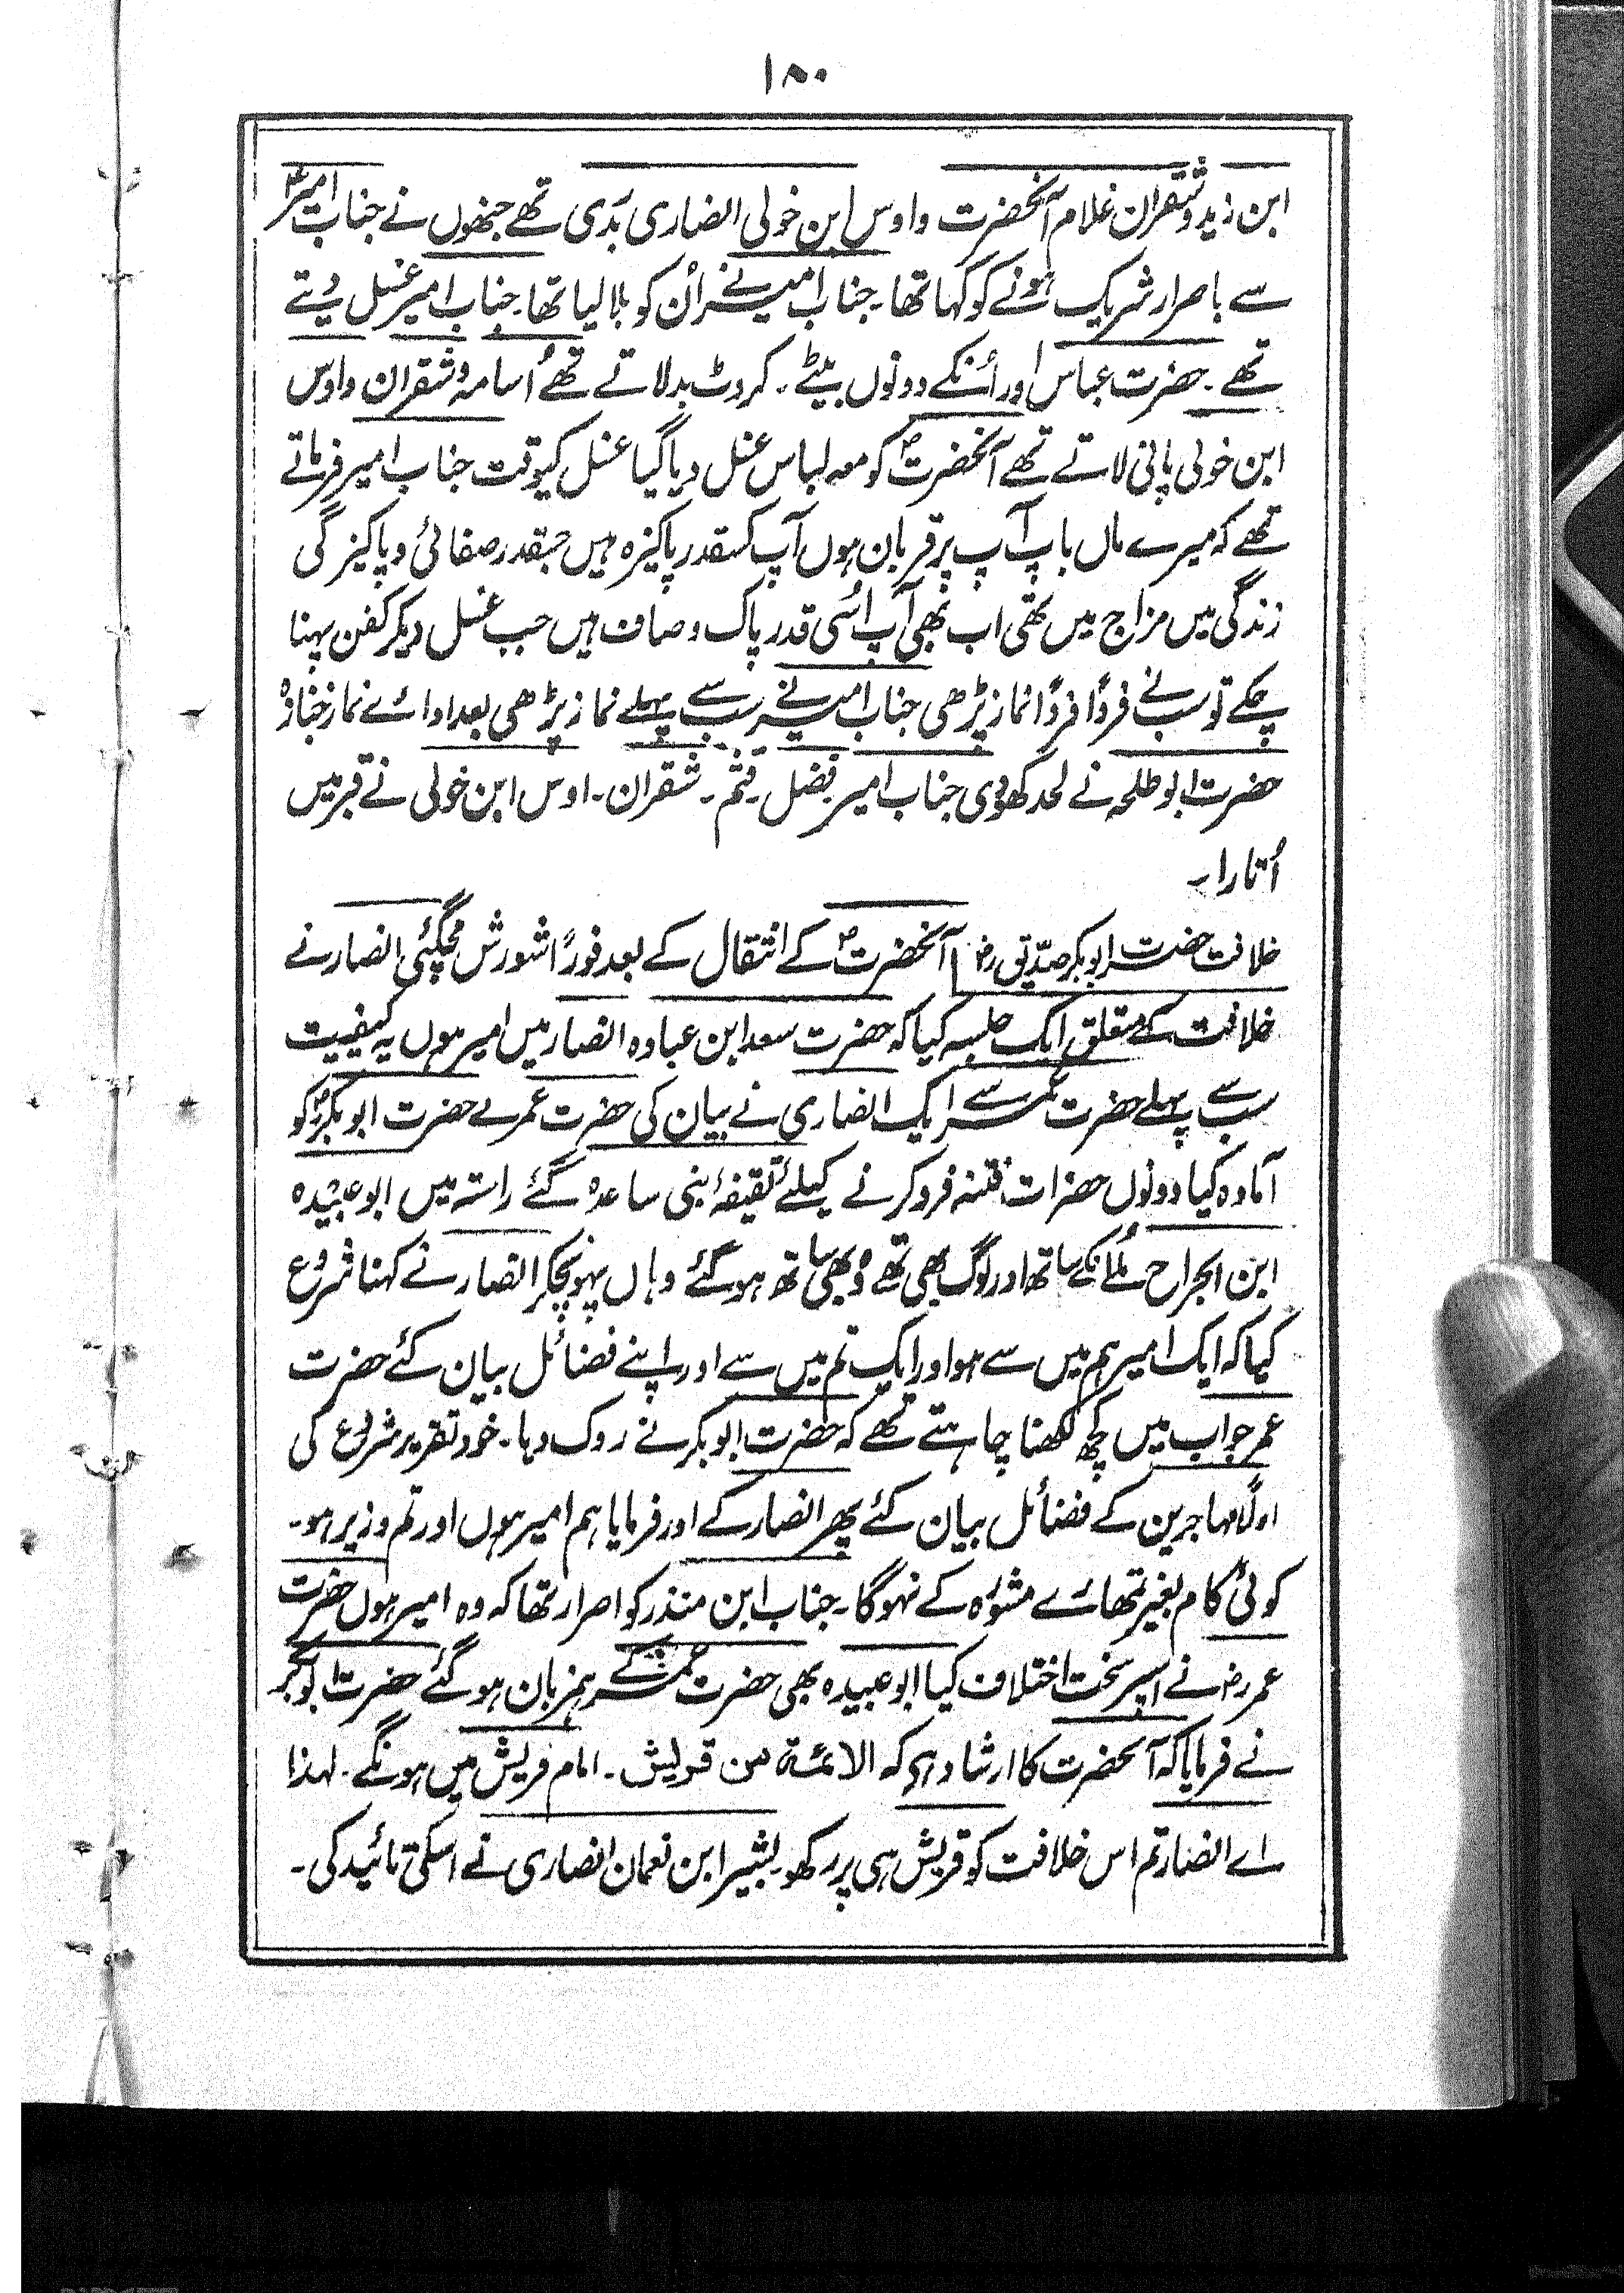 ۱۸۰
ابن زید و شقران غلام آنحضرت و اوس ابن خولی انصاری بدری تھے جنھوں نے جناب امیرؑ
سے باصرار شریک ہونے کو کہا تھا۔ جناب امیر نے اُن کو بلا لیا تھا۔ جناب امیر غسل دیتے
تھے۔ حضرت عباس اور اُنکے دونوں بیٹے۔ کروٹ بدلاتے تھے اُسامہ و شقران و اوس
ابن خولی پانی لاتے تھے آنحضرتؐ کو معہ لباس غسل دیا گیا غسل کیوقت جناب امیر فرماتے
تھے کہ میرے ماں باپ آپ پر قربان ہوں آپ کسقدر پاکیزہ ہیں جسقدر صفائی و پاکیزگی
زندگی میں مزاج میں تھی اب بھی آپ اُسی قدر پاک و صاف ہیں جب غسل دیکر کفن پہنا
چکے تو سب نے فرداً فرداً نماز پڑھی جناب امیر نے سب سے پہلے نماز پڑھی بعد ادائے نماز جنازہ
حضرت ابو طلحہ نے لحد کھودی جناب امیر۔ فضل۔ قثم۔ شقران۔ اوس ابن خولی نے قبر میں
اُتارا۔
خلافت حضرت ابوبکر صدّیق رض آنحضرتؐ کے انتقال کے بعد فوراً شورش مچگئی انصار نے
خلافت کے متعلق ایک جلسہ کیا کہ حضرت سعد ابن عبادہ انصار میں امیر ہوں یہ کیفیت
سب سے پہلے حضرت عمر سے ایک انصاری نے بیان کی حضرت عمر نے حضرت ابوبکرؓ کو
آمادہ کیا دونوں حضرات فتنہ فرو کرنے کیلئے ثقیفۂ بنی ساعدہ گئے راستہ میں ابو عبیدہ
ابن الجراح ملے اُنکے ساتھ اور لوگ بھی تھے وہ بھی ساتھ ہو گئے وہاں پہونچکر انصار نے کہنا شروع
کیا کہ ایک امیر ہم میں سے ہو اور ایک تم میں سے اور اپنے فضائل بیان کئے حضرت
عمر جواب میں کچھ کہنا چاہتے تھے کہ حضرت ابوبکر نے روک دیا۔ خود تقریر شروع کی
اولاً مہاجرین کے فضائل بیان کئے پھر انصار کے اور فرمایا ہم امیر ہوں اور تم وزیر ہو۔
کوئی کام بغیر تمھارے مشورہ کے نہوگا۔ جناب ابن منذر کو اصرار تھا کہ وہ امیر ہوں حضرت
عمر رض نے اسپر سخت اختلاف کیا ابو عبیدہ بھی حضرت عمر کے ہمزبان ہو گئے حضرت ابوبکر
نے فرمایا کہ آنحضرت کا ارشاد ہی کہ الائمۃ من قریش۔ امام قریش میں ہونگے۔ لہذا
اے انصار تم اس خلافت کو قریش ہی پر رکھو۔ بشیر ابن نعمان انصاری نے اسکی تائید کی۔